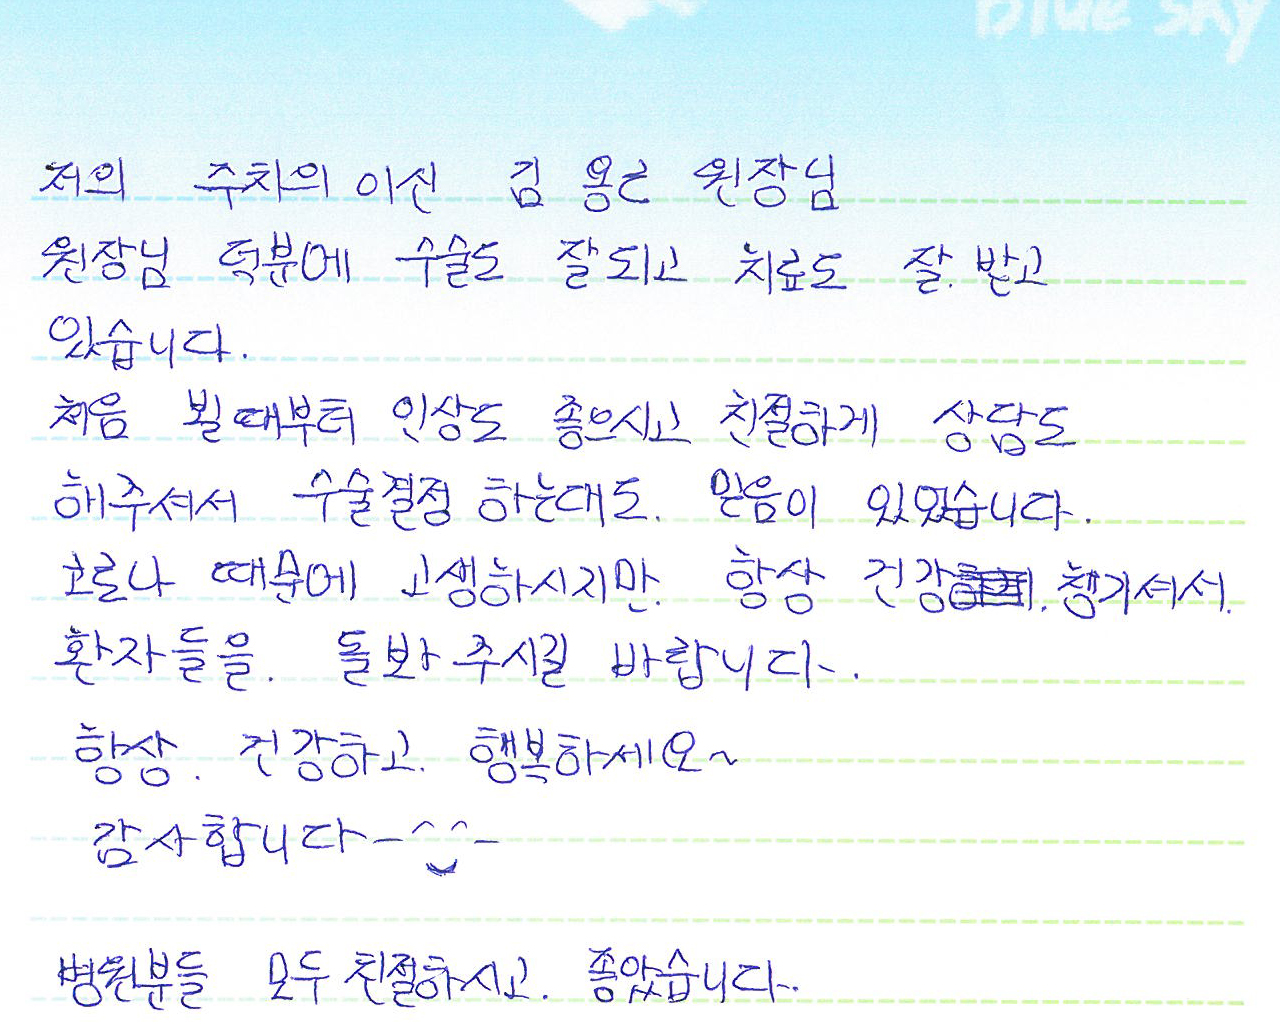 Blue sky
저의 주치의 이신 김 용근 원장님
원장님 덕분에 수술도 잘되고 치료도 잘. 받고
있습니다.
처음 뵐때부터 인상도 좋으시고 친절하게 상담도
해주셔서 수술결정 하는대도. 믿음이 있었습니다.
코로나 때문에 고생하시지만. 항상 건강 . 챙기셔서.
환자들을. 돌봐 주시길 바랍니다.
항상. 건강하고. 행복하세요~
감사합니다-^^-
병원분들 모두 친절하시고. 좋았습니다.